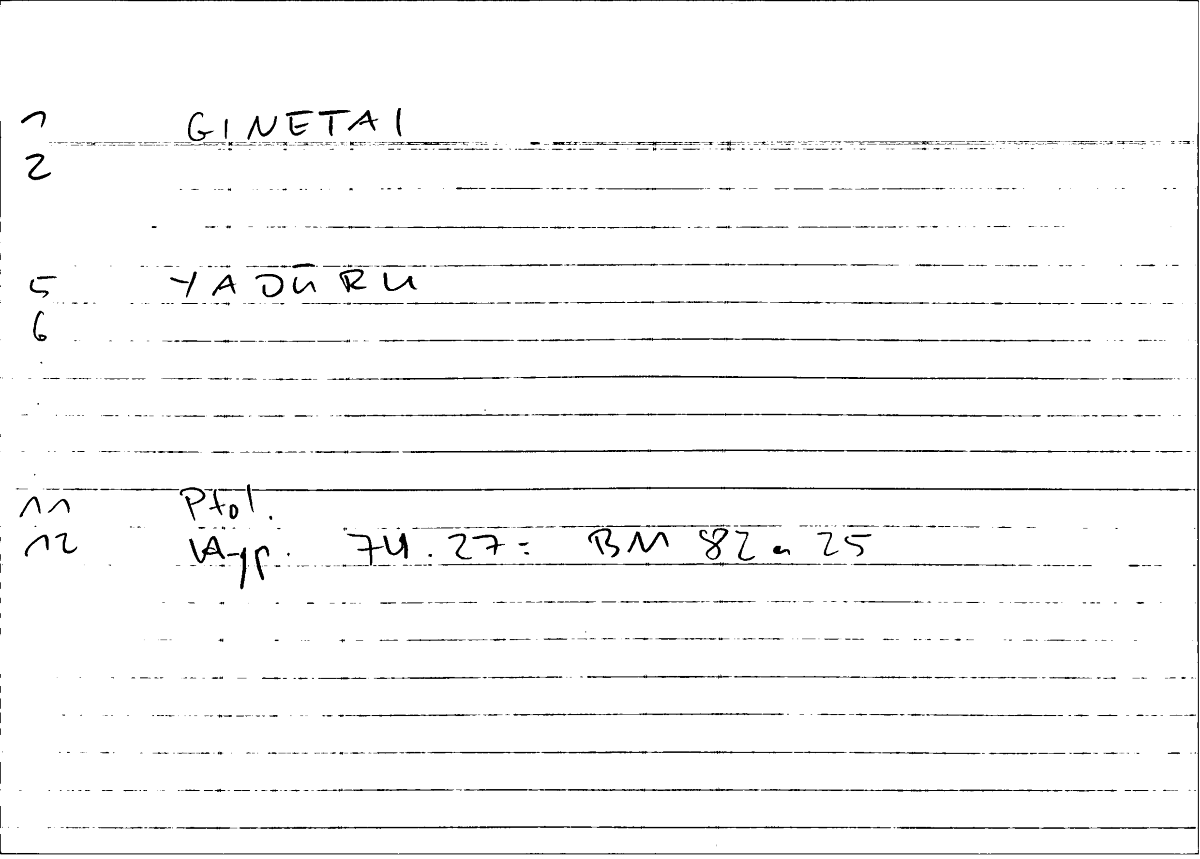 1 GINETAI
2
5 YADŪRU
6
11 Ptol.
12 74.27: BM 82 25